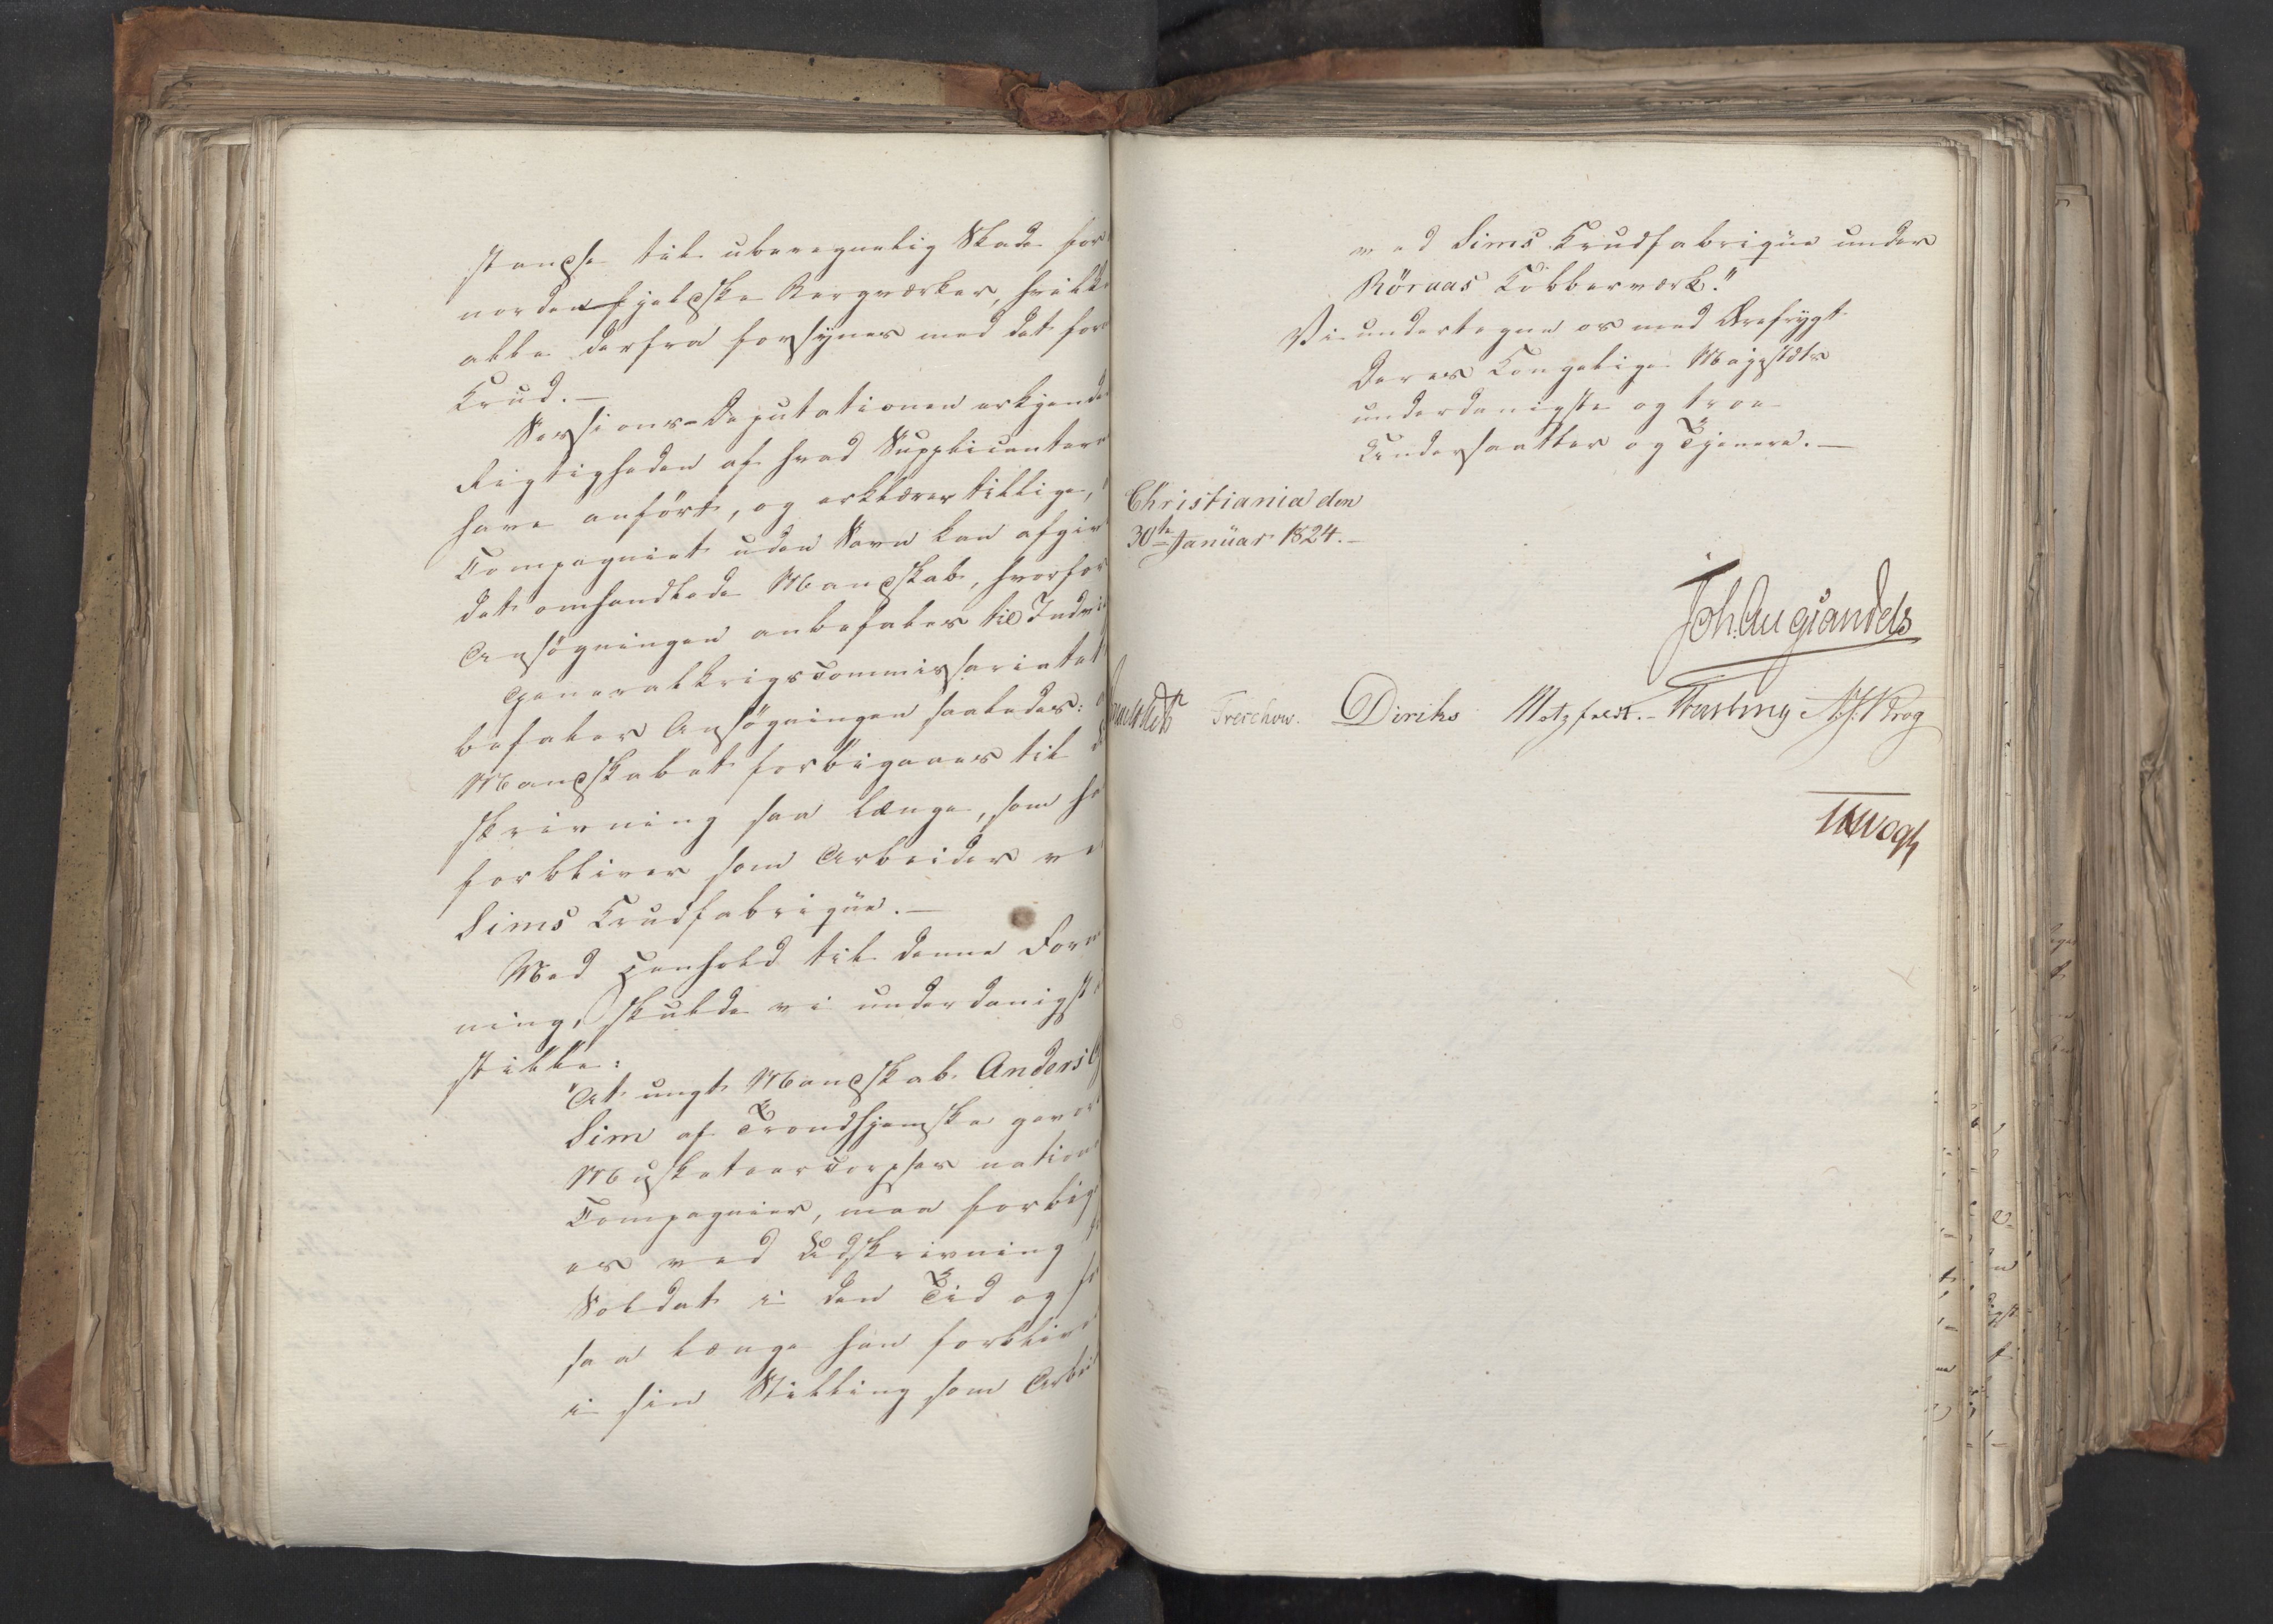 standse til uberegnelig Skade for
nordenfjelske Bergværker, hvilke
alle derfra forsynes med det for
Krud. —
Sessions-Deputationen erkjende
Rigtigheden af hvad Supplicantere
have anført, og erklærer tillige,
Compagniet uden Savn kan afgive
det omhandlede Mandskab, hvorfor
Ansøgningen anbefales til Indvi
Generalkrigscommissariatet
befaler Ansøgningen saaledes:
Mandskabet forbigaaes til
skrivning saa længe, som ha
forbliver som Arbeider ve
Sims Krudfabriqüe. —
Med Henhold til denne Form
ning, skulde vi underdanigst
stille:
"At ungt Mandskab Anders
Sim af Trondhjemske gevor
Musketeercorpses nation
Compagnier, maa forbig
es ved Udskrivning
Soldat i den Tid og
saa længe han forblive
i sin Stilling som Arbei
ved Sims Krudfabriqüe under
Röraas Kobberværk."
Vi undertegne os med Ærefrygt
Deres Kongelige Majestæts
underdanigste og troe
Undersaatter og Tjenere. —
Christiania den
30te Januar 1824. —
Joh. Aug Sandels
Treschow. Diriks Motzfeldt. — Fasting N. J. Krog
Vogt